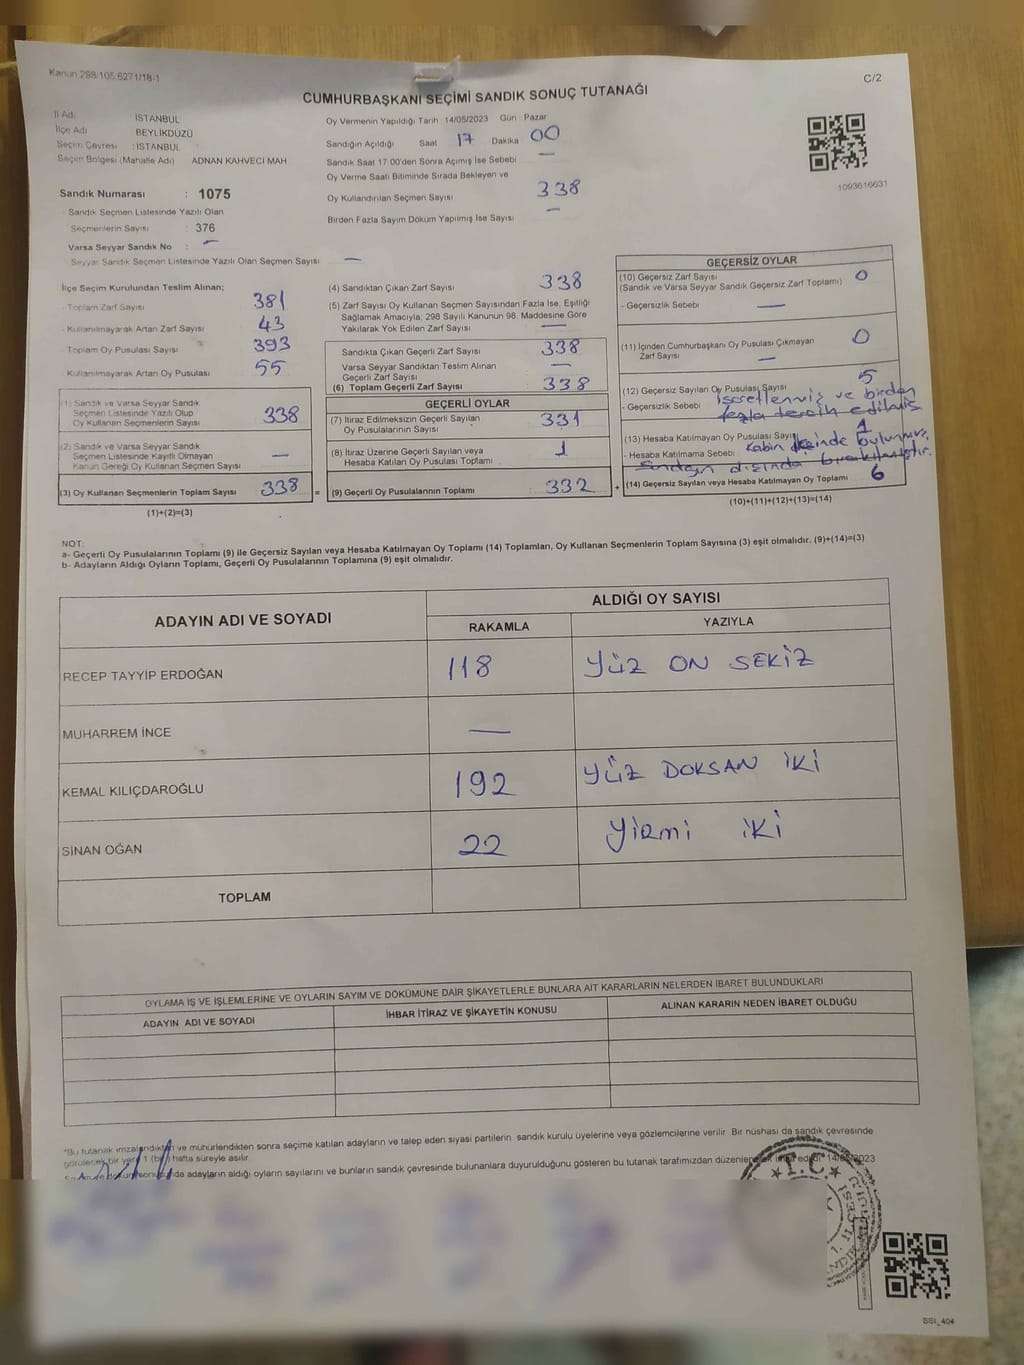 Kanun 298/105.6271/18-1
C/2
CUMHURBAŞKANI SEÇİMİ SANDIK SONUÇ TUTANAĞI
İl Adı : İSTANBUL
İlçe Adı BEYLİKDÜZÜ
Seçim Çevresi : İSTANBUL
Seçim Bölgesi (Mahalle Adı) ADNAN KAHVECİ MAH
Sandık Numarası : 1075
Sandık Seçmen Listesinde Yazılı Olan
Seçmenlerin Sayısı : 376
Varsa Seyyar Sandık No : —
Seyyar Sandık Seçmen Listesinde Yazılı Olan Seçmen Sayısı —
Oy Vermenin Yapıldığı Tarih 14/05/2023 Gün Pazar
Sandığın Açıldığı Saat 17 Dakika 00
Sandık Saat 17.00'den Sonra Açılmış İse Sebebi —
Oy Verme Saati Bitiminde Sırada Bekleyen ve
Oy Kullandırılan Seçmen Sayısı 338
Birden Fazla Sayım Döküm Yapılmış İse Sayısı —
1093616631
İlçe Seçim Kurulundan Teslim Alınan;
- Toplam Zarf Sayısı 381
- Kullanılmayarak Artan Zarf Sayısı 43
- Toplam Oy Pusulası Sayısı 393
- Kullanılmayarak Artan Oy Pusulası 55
(1) Sandık ve Varsa Seyyar Sandık
Seçmen Listesinde Yazılı Olup
Oy Kullanan Seçmenlerin Sayısı 338
(2) Sandık ve Varsa Seyyar Sandık
Seçmen Listesinde Kayıtlı Olmayan
Kanun Gereği Oy Kullanan Seçmen Sayısı —
(3) Oy Kullanan Seçmenlerin Toplam Sayısı 338 =
(1)+(2)=(3)
(4) Sandıktan Çıkan Zarf Sayısı 338
(5) Zarf Sayısı Oy Kullanan Seçmen Sayısından Fazla İse, Eşitliği
Sağlamak Amacıyla; 298 Sayılı Kanunun 98. Maddesine Göre
Yakılarak Yok Edilen Zarf Sayısı —
Sandıkta Çıkan Geçerli Zarf Sayısı 338
Varsa Seyyar Sandıktan Teslim Alınan
Geçerli Zarf Sayısı —
(6) Toplam Geçerli Zarf Sayısı 338
GEÇERLİ OYLAR
(7) İtiraz Edilmeksizin Geçerli Sayılan
Oy Pusulalarının Sayısı 331
(8) İtiraz Üzerine Geçerli Sayılan veya
Hesaba Katılan Oy Pusulası Toplamı 1
(9) Geçerli Oy Pusulalarının Toplamı 332 +
GEÇERSİZ OYLAR
(10) Geçersiz Zarf Sayısı 0
(Sandık ve Varsa Seyyar Sandık Geçersiz Zarf Toplamı)
- Geçersizlik Sebebi —
(11) İçinden Cumhurbaşkanı Oy Pusulası Çıkmayan 0
Zarf Sayısı —
(12) Geçersiz Sayılan Oy Pusulası Sayısı 5
- Geçersizlik Sebebi işaretlenmiş ve birden
fazla tercih edilmiş
(13) Hesaba Katılmayan Oy Pusulası Sayısı 1
- Hesaba Katılmama Sebebi Kabin içinde bulunmuş,
Sandığın dışında bırakılmıştır.
(14) Geçersiz Sayılan veya Hesaba Katılmayan Oy Toplamı 6
(10)+(11)+(12)+(13)=(14)
NOT:
a- Geçerli Oy Pusulalarının Toplamı (9) ile Geçersiz Sayılan veya Hesaba Katılmayan Oy Toplamı (14) Toplamları, Oy Kullanan Seçmenlerin Toplam Sayısına (3) eşit olmalıdır. (9)+(14)=(3)
b- Adayların Aldığı Oyların Toplamı, Geçerli Oy Pusulalarının Toplamına (9) eşit olmalıdır.
ADAYIN ADI VE SOYADI
ALDIĞI OY SAYISI
RAKAMLA YAZIYLA
RECEP TAYYİP ERDOĞAN 118 YÜZ ON SEKİZ
MUHARREM İNCE —
KEMAL KILIÇDAROĞLU 192 YÜZ DOKSAN İKİ
SİNAN OĞAN 22 Yirmi iki
TOPLAM
OYLAMA İŞ VE İŞLEMLERİNE VE OYLARIN SAYIM VE DÖKÜMÜNE DAİR ŞİKAYETLERLE BUNLARA AİT KARARLARIN NELERDEN İBARET BULUNDUKLARI
ADAYIN ADI VE SOYADI İHBAR İTİRAZ VE ŞİKAYETİN KONUSU ALINAN KARARIN NEDEN İBARET OLDUĞU
"Bu tutanak imzalandıktan ve mühürlendikten sonra seçime katılan adayların ve talep eden siyasi partilerin, sandık kurulu üyelerine veya gözlemcilerine verilir. Bir nüshası da sandık çevresinde
görülecek bir yere 1 (bir) hafta süreyle asılır.
adayların aldığı oyların sayılarını ve bunların sandık çevresinde bulunanlara duyurulduğunu gösteren bu tutanak tarafımızdan
T.C.
SSI_404